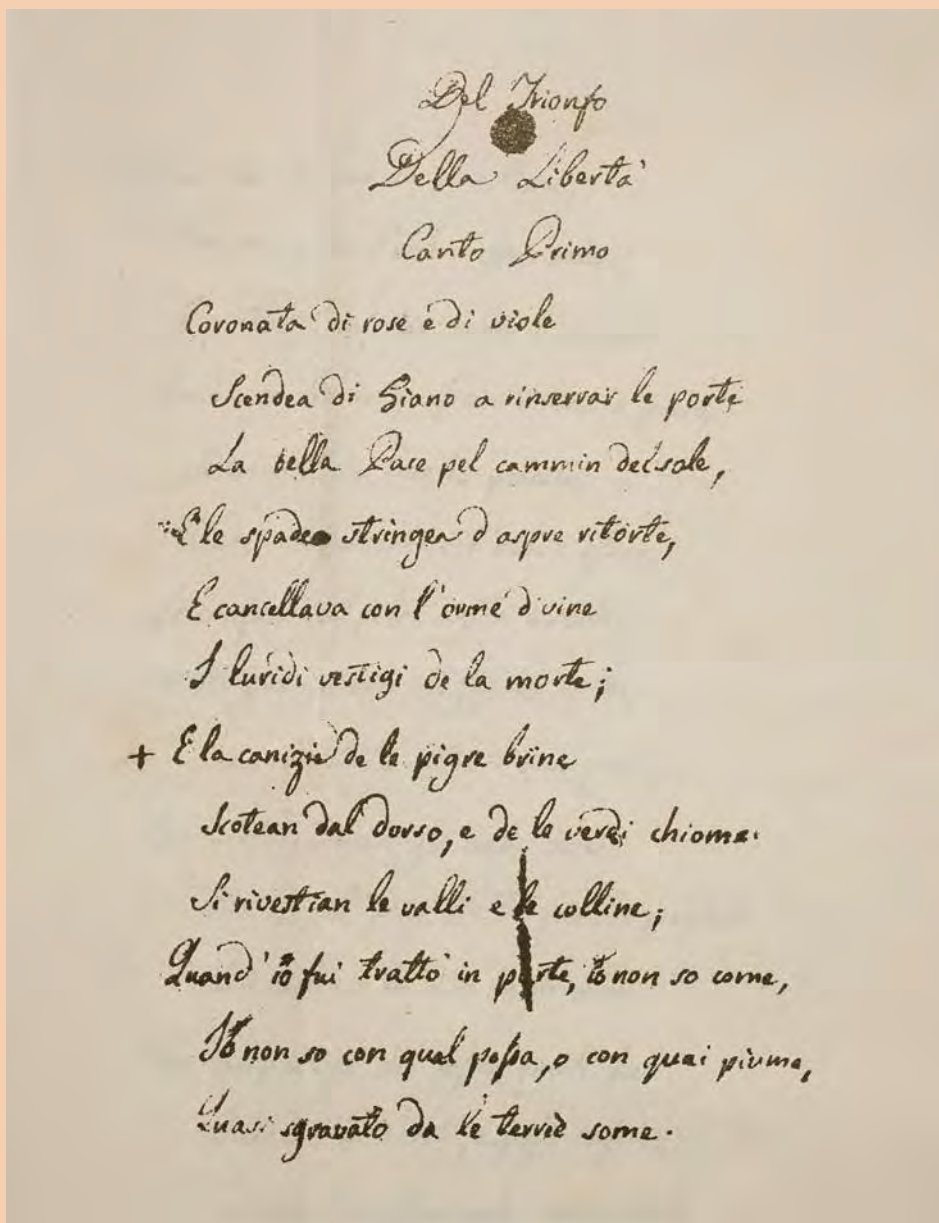 Del Trionfo
Della Libertà
Canto Primo
Coronata di rose e di viole
Scendea di Giano a rinserrar le porte
La bella Pace pel cammin del sole,
E le spade stringea d'aspre ritorte,
E cancellava con l'orme divine
I luridi vestigi de la morte;
+ E la canizie de le pigre brine
Scotean dal dorso, e de le verdi chiome
Si rivestian le valli e le colline;
Quand' io fui tratto in parte, io non so come,
Io non so con qual possa, o con quai piume,
Quasi sgravato da le terree some.